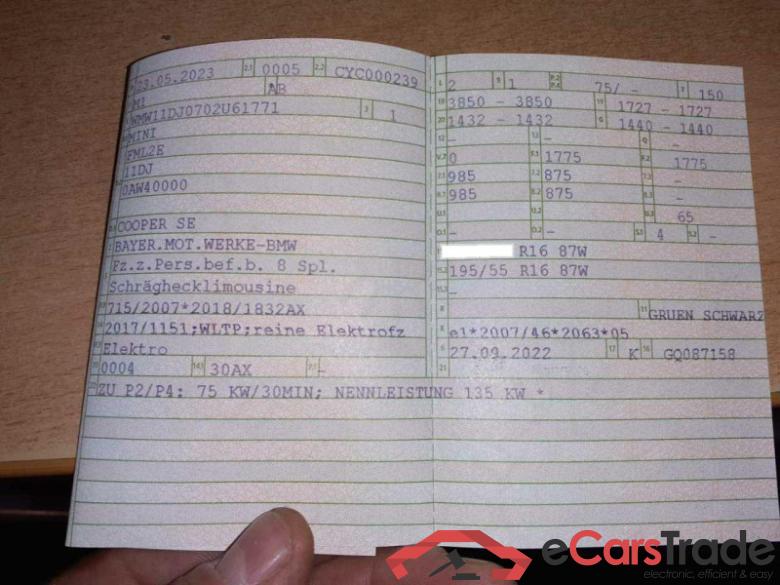 23.05.2023 2.1 0005 2.2 CYC000239
M1 AB
WMW11DJ0702U61771 3 1
MINI
FML2E
11DJ
0AW40000
COOPER SE
BAYER.MOT.WERKE-BMW
Fz.z.Pers.bef.b. 8 Spl.
Schräghecklimousine
715/2007*2018/1832AX
2017/1151;WLTP;reine Elektrofz
Elektro
0004 14.1 30AX -
22 ZU P2/P4: 75 KW/30MIN; NENNLEISTUNG 135 KW *
L 2 9 1 P.2 P.4 75/ - T 150
18 3850 - 3850 19 1727 - 1727
20 1432 - 1432 G 1440 - 1440
12 - 13 - Q -
V.7 0 F.1 1775 F.2 1775
7.1 985 7.2 875 7.3 -
8.1 985 8.2 875 8.3 -
U.1 U.3 65
O.1 - O.2 - S.1 4 S.2 -
R16 87W
15.2 195/55 R16 87W
-
R 11 GRUEN SCHWARZ
K e1*2007/46*2063*05
6 27.09.2022 17 K 16 GQ087158
21
eCarsTrade
electronic, efficient & easy